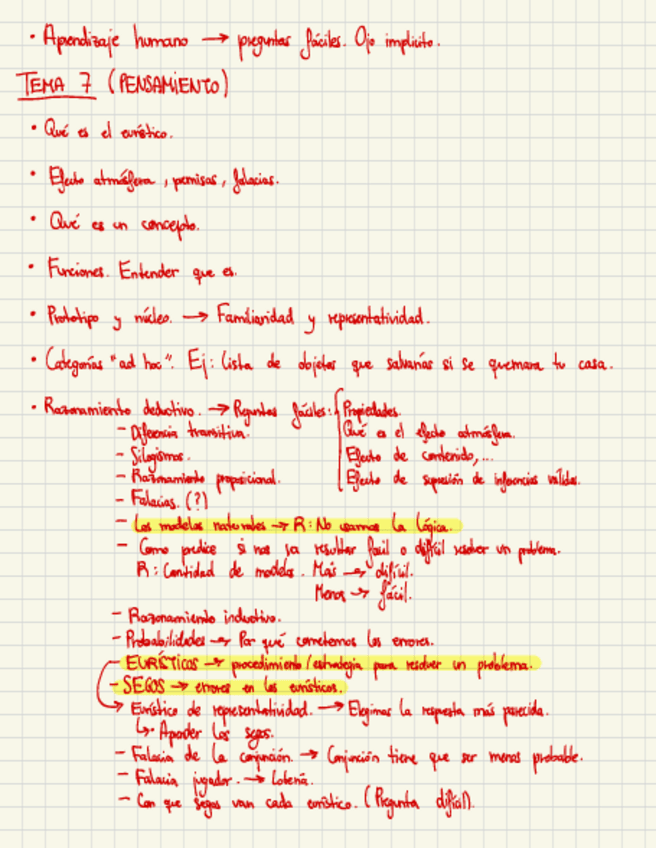 • Aprendizaje humano → preguntas fáciles. Ojo implícito.
TEMA 7 (PENSAMIENTO)
• Qué es el eurístico.
• Efecto atmósfera, premisas, falacias.
• Qué es un concepto.
• Funciones. Entender que es.
• Prototipo y núcleo. → Familiaridad y representatividad.
• Categorías "ad hoc". Ej: lista de objetos que salvarías si se quemara tu casa.
• Razonamiento deductivo. → Preguntas fáciles: Propiedades.
- Diferencia transitiva. Qué es el efecto atmósfera.
- Silogismos. Efecto de contenido,...
- Razonamiento proposicional. Efecto de supresión de inferencias válidas.
- Falacias. (?)
- Los modelos naturales → R: No usamos la lógica.
- Como predice si nos va resultar fácil o difícil resolver un problema.
R: Cantidad de modelos. Más → difícil.
Menos → fácil.
- Razonamiento inductivo.
- Probabilidades → Por qué cometemos los errores.
- EURÍSTICOS → procedimiento/estrategia para resolver un problema.
- SEGOS → errores en los eurísticos.
→ Eurístico de representatividad. → Elegimos la respuesta más parecida.
↳ Aprender los segos.
- Falacia de la conjunción. → Conjunción tiene que ser menos probable.
- Falacia jugador. → Lotería.
- Con que segos van cada eurístico. (Pregunta difícil).